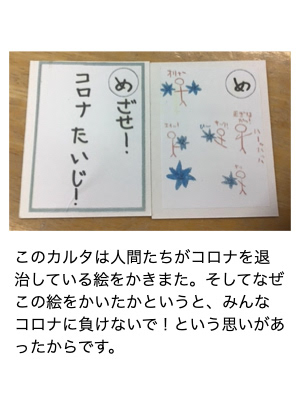 めざせー！
コロナ たいじ！
め
このカルタは人間たちがコロナを退
治している絵をかきまた。そしてなぜ
この絵をかいたかというと、みんな
コロナに負けないで！という思いがあ
ったからです。